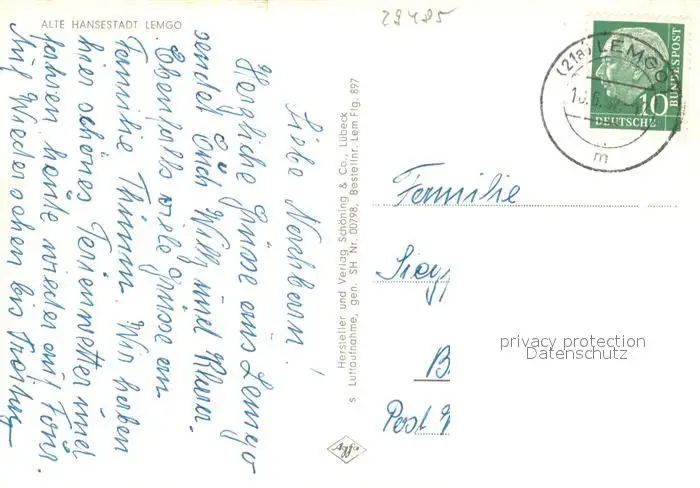 ALTE HANSESTADT LEMGO
29495
Liebe Nachbarn!
Herzliche Grüsse aus Lemgo
sendet Euch Willy und Klara.
Ebenfalls viele Grüsse an
Familie Thimm. Wir haben
hier schönes Ferienwetter und
fahren heute wieder auf Tour.
Auf Wiedersehen bis
Hersteller und Verlag Schöning & Co., Lübeck
s Luftaufnahme, gen. SH Nr. 00798, Bestellnr. Lem Flg. 897
Agfa
(21a) LEMGO
m
10
DEUTSCHE
BUNDESPOST
Familie
Sieg
B
Post
privacy protection
Datenschutz